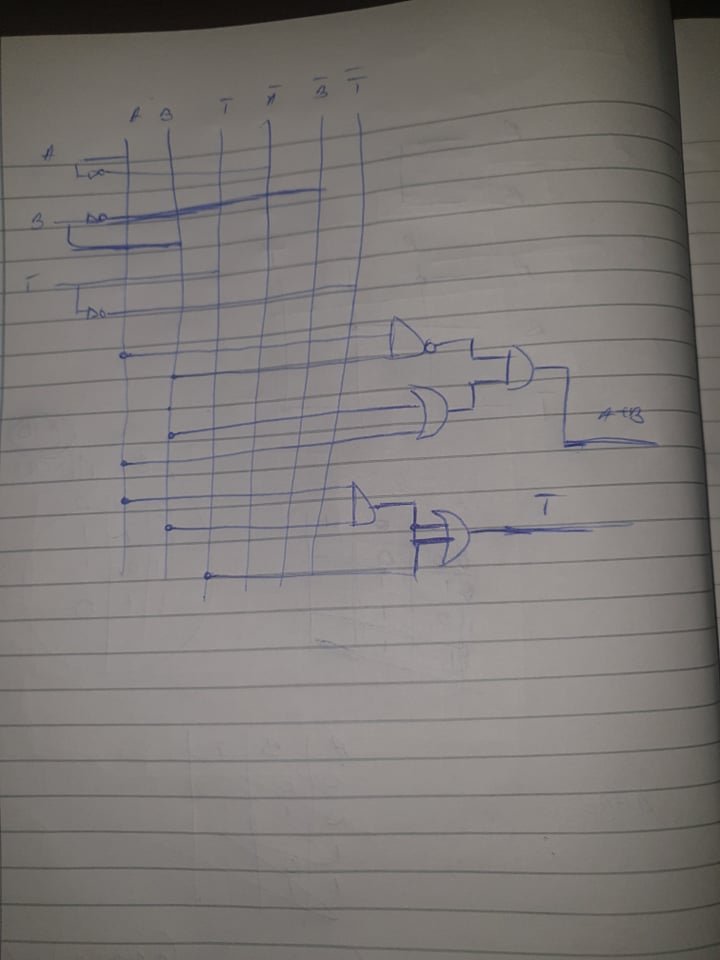 A B T A̅ B̅ T̅
A
B
T
A+B
T